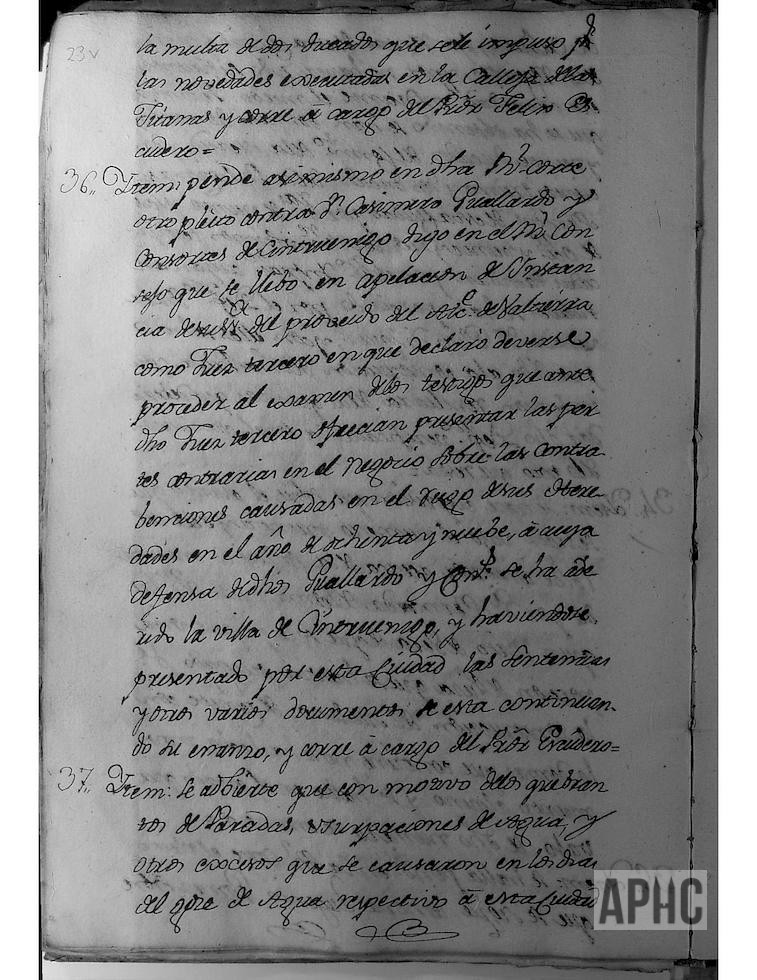 23v
la multa de dos ducados que se le impuso pr
las novedades executadas en la Calleja de las
Titanas y corre â cargo del Prõr Felix Es
cudero=
36,, Ytem: pende asimismo en dha Rl. Corte
otro pleito contra Dn. Casimiro Guallardo y
Consortes de Cintruenigo digo en el Rl. Con
sejo que se llebo en apelacion de Instan
cia de sus del proveido del Alce. de Valtierra
como Juez tercero en que declaro deverse
proceder al examen de los testigos que ante
dho Juez tercero ofrecian presentar las par
tes contrarias en el negocio sobre las contra
benciones causadas en el riego de sus Here
dades en el año de ochenta y nuebe, â cuya
defensa de dhos Guallardo y Conts. se ha adhe
rido la villa de Cintruenigo, y haviendose
presentado por esta Ciudad las Sentencias
y otros varios documentos se esta continuan
do su enanzo, y corre â cargo del Prõr Escudero=
37,, Ytem: se adbierte que con motivo de los quebran
tos de Paradas, usurpaciones de Agua, y
otros excesos que se causaron en los dias
del gore de Agua respectivo â esta Ciudad
APHC